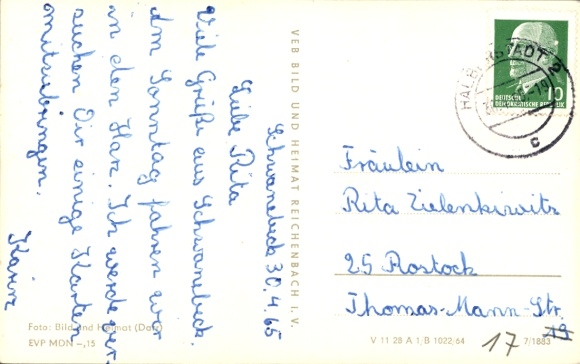 Schwanebeck 30.4.65
Liebe Rita
Viele Grüße aus Schwanebeck.
Am Sonntag fahren wir
in den Harz. Ich werde ver-
suchen Dir einige Karten
mitzubringen.
Karin
VEB BILD UND HEIMAT REICHENBACH I. V.
Foto: Bild und Heimat (Darr)
EVP MDN –,15
HALBERSTADT 2
c
10
DEUTSCHE
DEMOKRATISCHE REPUBLIK
Fräulein
Rita Zielenkiewitz
25 Rostock
Thomas-Mann-Str.
19
17
V 11 28 A 1 B 1022/64
7/1883